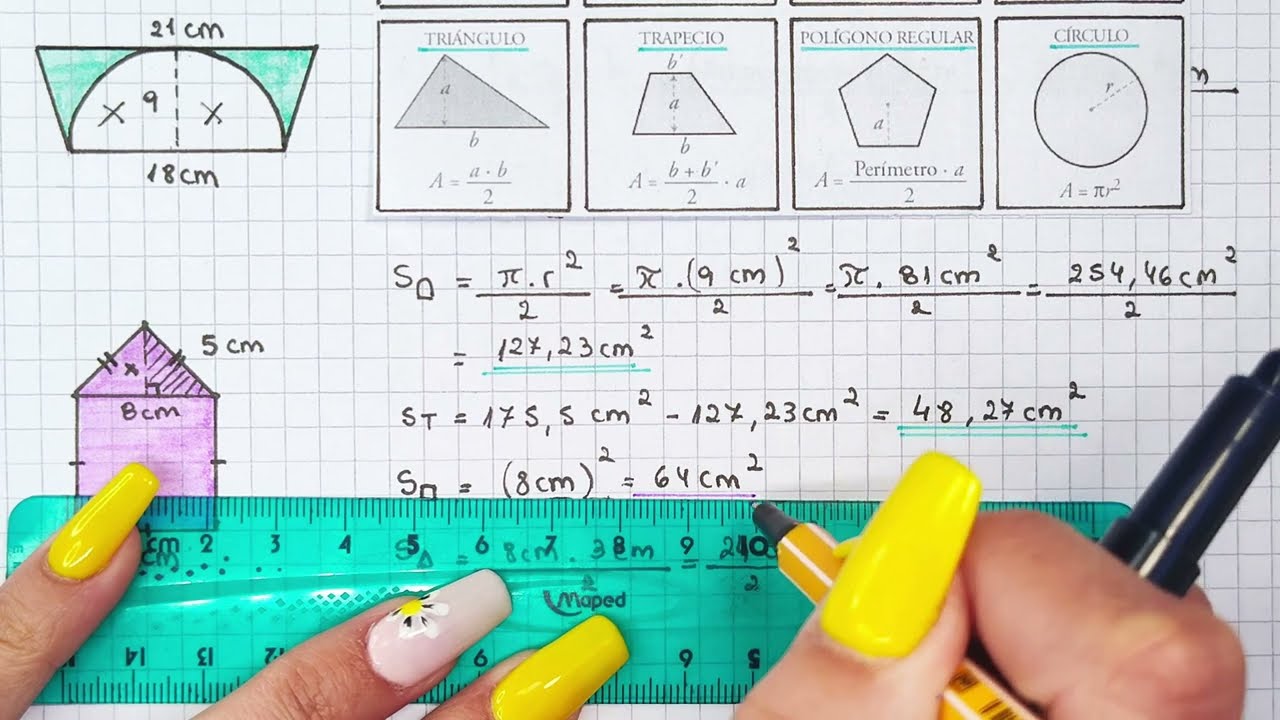 21 cm
9
18cm
TRIÁNGULO
a
b
A = a · b / 2
TRAPECIO
b'
a
b
A = b + b' / 2 · a
POLÍGONO REGULAR
a
A = Perímetro · a / 2
CÍRCULO
r
A = πr²
S = π.r² / 2 = π.(9 cm)² / 2 = π. 81cm² / 2 = 254,46cm² / 2
= 127,23cm²
ST = 175,5 cm² - 127,23cm² = 48,27cm²
S = (8cm)² = 64cm²
S = 8cm . 3cm / 2 = / 2
5 cm
x
8cm
cm 2 3 4 5 6 7 8 9 10
Maped
14 13 12 6 6 5